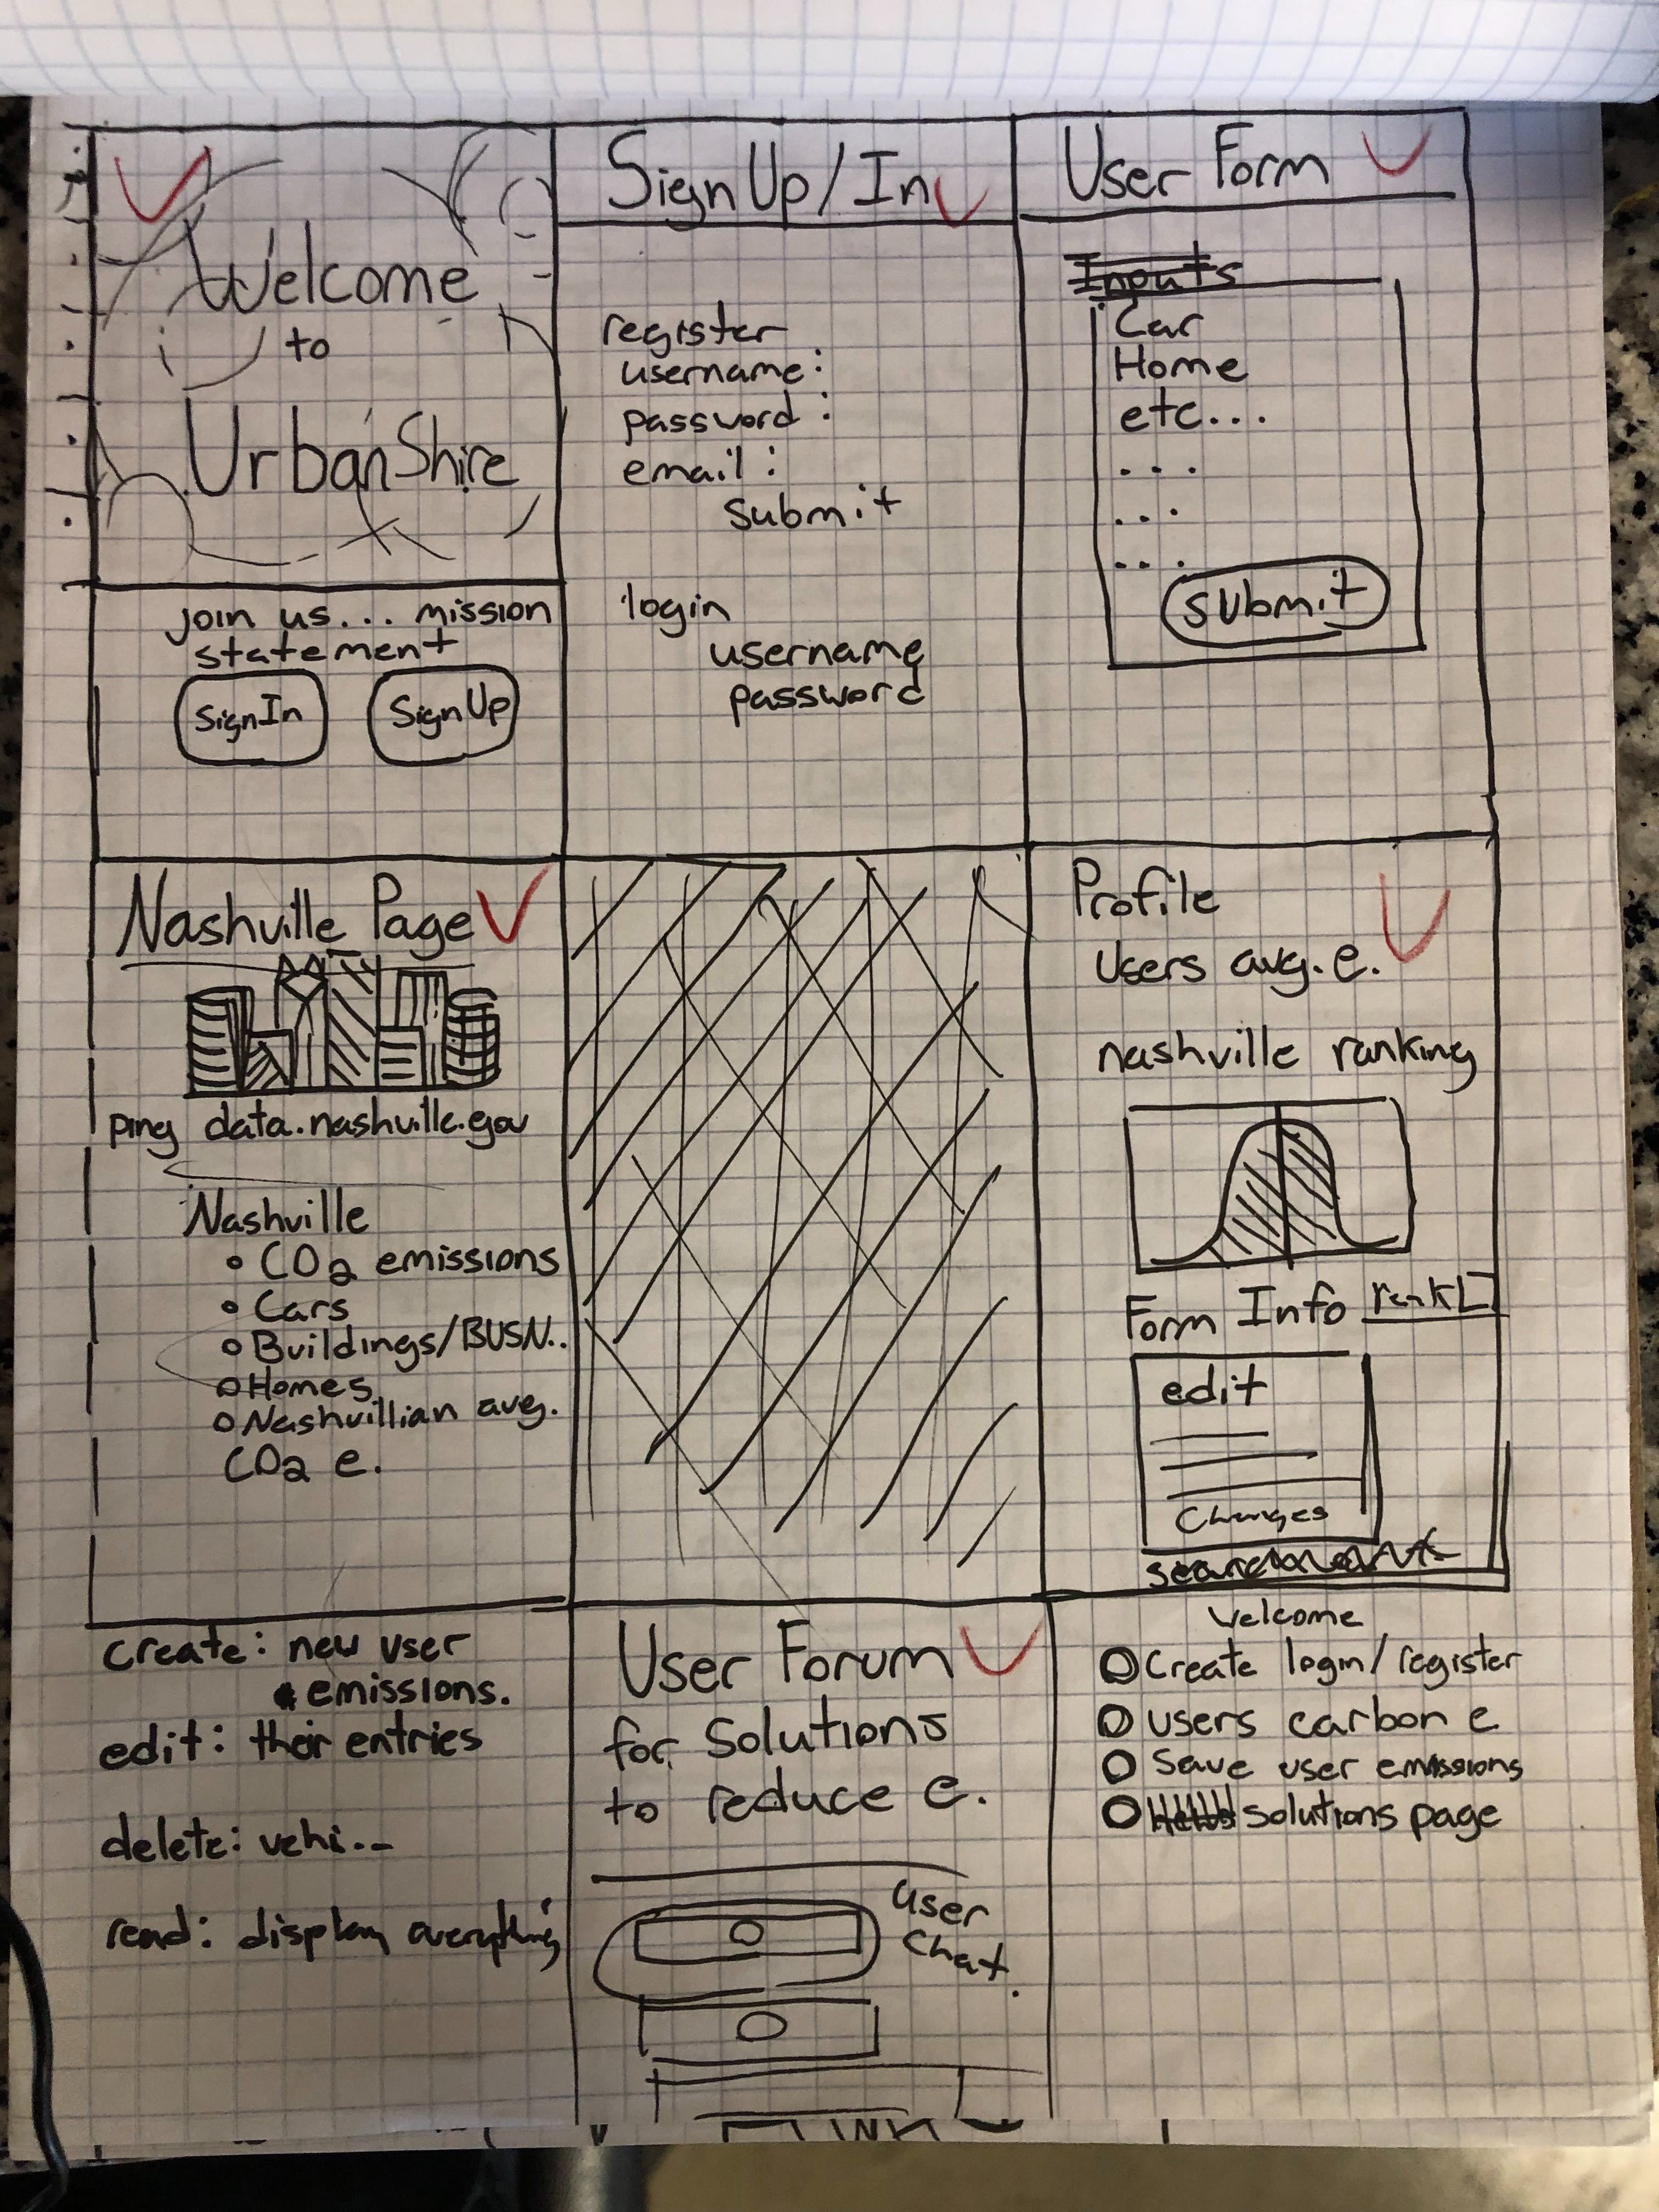 Welcome
to
UrbanShire
join us... mission
statement
SignIn
SignUp
Sign Up/In
register
username:
password:
email:
submit
login
username
password
User Form
Inputs
Car
Home
etc...
...
...
...
submit
Nashville Page
ping data.nashville.gov
Nashville
CO2 emissions
Cars
Buildings/BUSN..
Homes
Nashvillian avg.
CO2 e.
Profile
Users avg. e.
nashville ranking
Form Info
edit
Changes
create: new user
emissions.
edit: their entries
delete: vehi...
read: display everything
User Forum
for Solutions
to reduce e.
User
Chat.
Welcome
Create login/register
users carbon e
Save user emissions
Solutions page